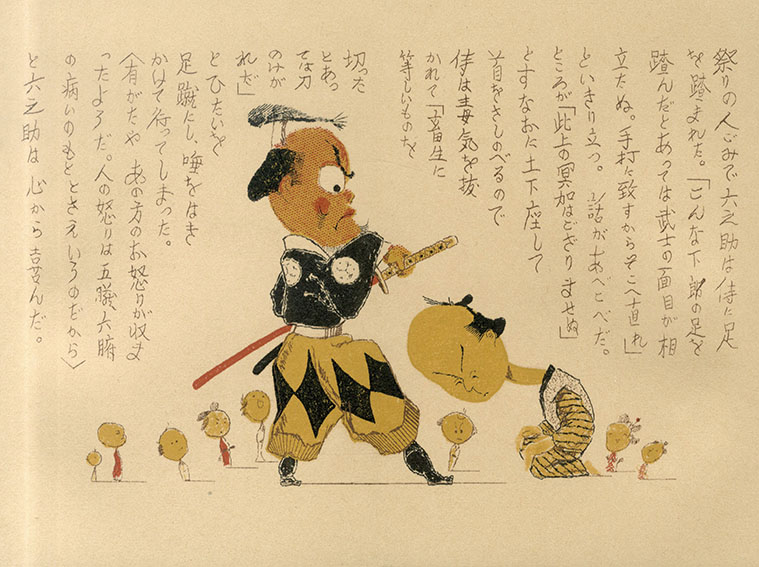 祭りの人ごみで六之助は侍に足
を踏まれた。「こんな下郎の足を
踏んだとあっては武士の面目が相
立たぬ。手打に致すからそこへ直れ」
といきり立つ。話があべこべだ。
ところが「此上の冥加はござりませぬ」
とすなおに土下座して
首をさしのべるので
侍は毒気を抜
かれて「畜生に
等しいものを
切った
とあっ
ては刀
のけが
れだ」
とひたいを
足蹴にし、唾をはき
かけて行ってしまった。
〈有がたや あの方のお怒りが収ま
ったようだ。人の怒りは五臓六腑
の病いのもととさえいうのだから〉
と六之助は 心から喜んだ。